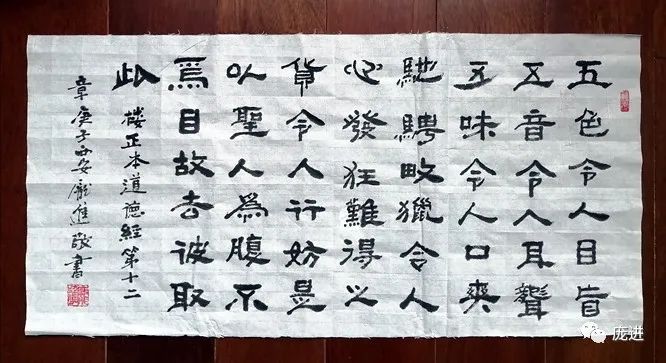 五色令人目盲
五音令人耳聾
五味令人口爽
馳騁畋獵令人
心發狂難得之
貨令人行妨是
以聖人爲腹不
爲目故去彼取
此 樓正本道德經第十二
章庚子西安龐進敬書
庞进